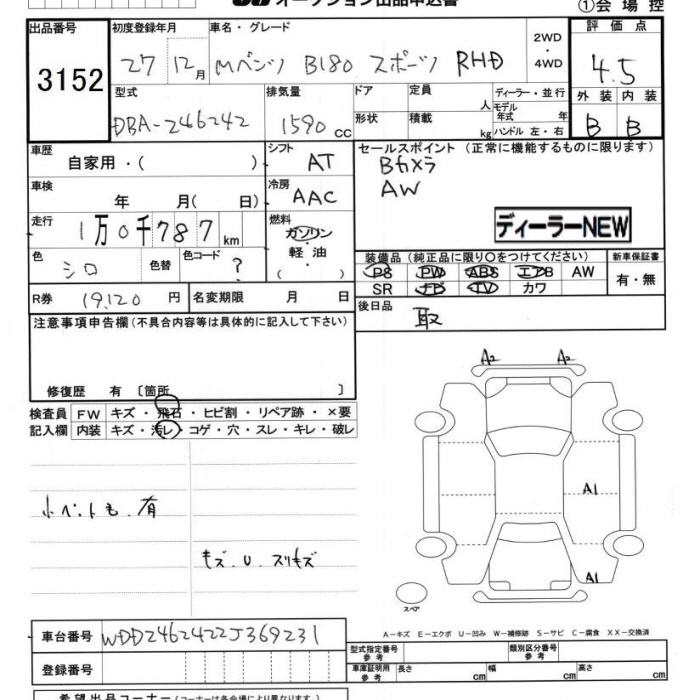 オークション出品申込書
①会場控
出品番号 初度登録年月 車名・グレード 2WD 評価点
3152 27 12月 Mベンツ B180 スポーツ RHD ・ 4WD 4.5
型式 排気量 ドア 定員 人 ディーラー・並行 外装 内装
DBA-246242 1590 cc 形状 積載 kg モデル年式 年 B B
ハンドル 左・右
車歴 シフト セールスポイント (正常に機能するものに限ります)
自家用・( ) AT Bカメラ
車検 冷房 AW
年 月( 日) AAC
走行 燃料 ディーラーNEW
1万0千787 km ガソリン
色 色替 色コード 軽油 装備品 (純正品に限り○をつけてください) 新車保証書
シロ ? ・( ) PS PW ABS エアB AW 有・無
SR ナビ TV カワ
R券 19,120 円 名変期限 月 日 後日品
取
注意事項申告欄(不具合内容等は具体的に記入して下さい)
修復歴 有 〔箇所 〕
A2 A2
検査員 FW キズ・飛石・ヒビ割・リペア跡・×要
記入欄 内装 キズ・汚レ・コゲ・穴・スレ・キレ・破レ
A1
有
キズ.U.スリキズ
A1
スペア
車台番号 WDD2462422J369231
A-キズ E-エクボ U-凹み W-補修跡 S-サビ C-腐食 XX-交換済
登録番号 型式指定番号 参考 類別区分番号 参考
車庫証明用 参考 長さ cm 幅 cm 高さ cm
希望出品コーナー(コーナーは各会場により異なります。)